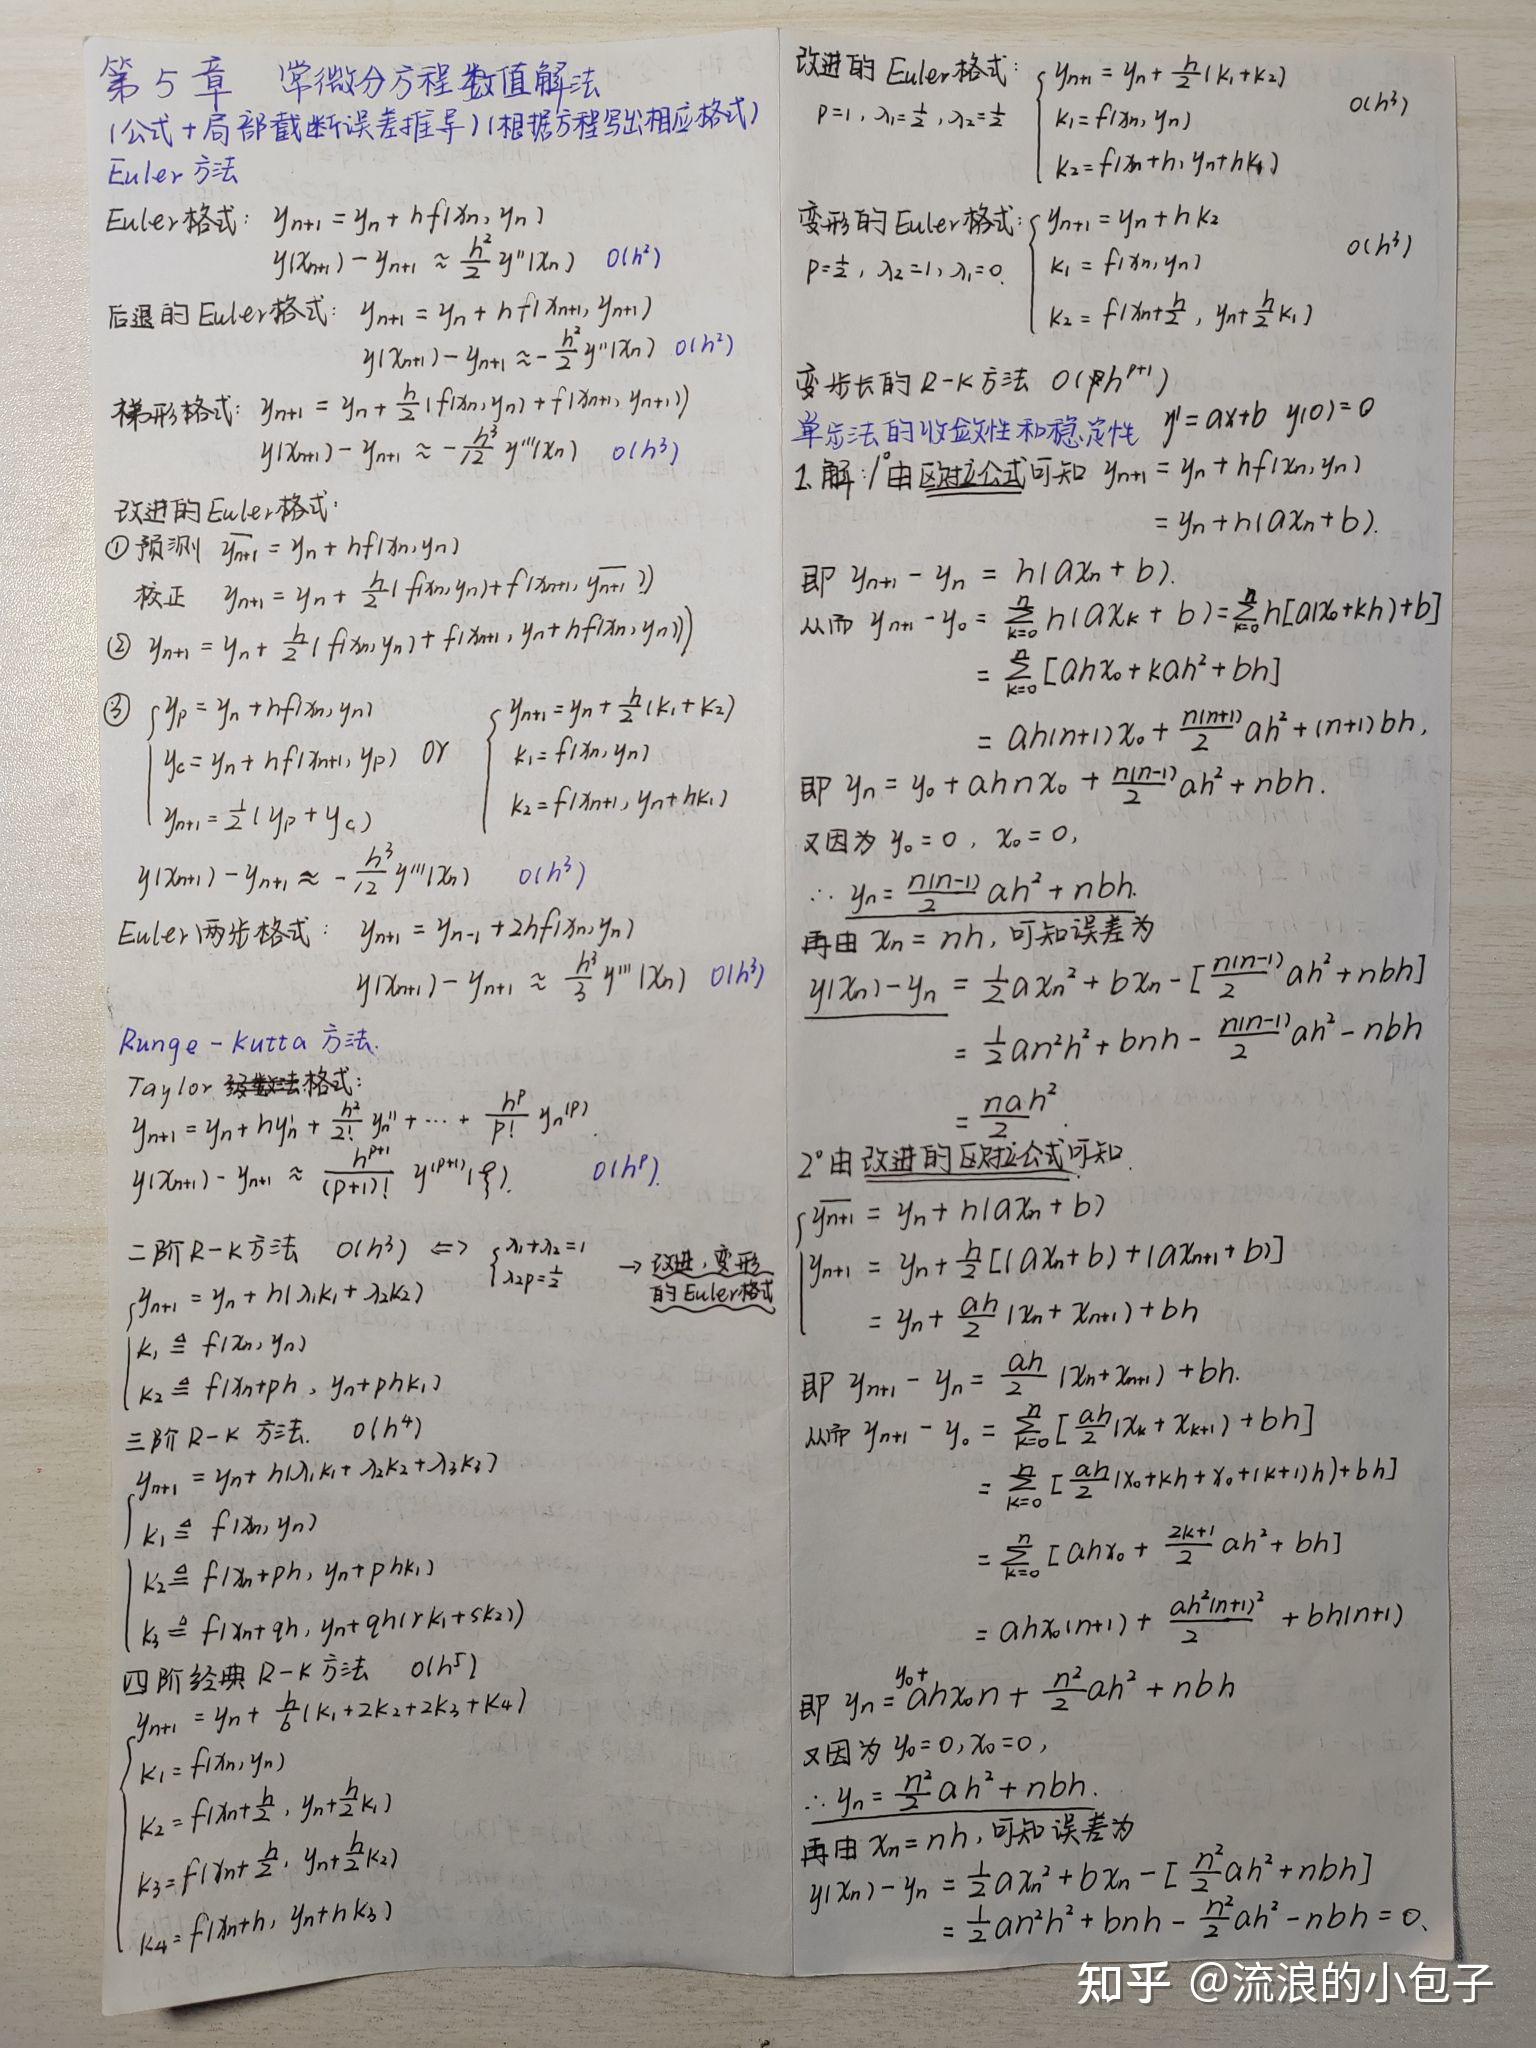 第5章 常微分方程数值解法
(公式+局部截断误差推导)(根据方程写出相应格式)
Euler方法
Euler格式: yₙ₊₁ = yₙ + hf(xₙ, yₙ)
y(xₙ₊₁) - yₙ₊₁ ≈ h²/2 y''(xₙ) O(h²)
后退的Euler格式: yₙ₊₁ = yₙ + hf(xₙ₊₁, yₙ₊₁)
y(xₙ₊₁) - yₙ₊₁ ≈ -h²/2 y''(xₙ) O(h²)
梯形格式: yₙ₊₁ = yₙ + h/2(f(xₙ, yₙ) + f(xₙ₊₁, yₙ₊₁))
y(xₙ₊₁) - yₙ₊₁ ≈ -h³/12 y'''(xₙ) O(h³)
改进的Euler格式:
① 预测 y̅ₙ₊₁ = yₙ + hf(xₙ, yₙ)
校正 yₙ₊₁ = yₙ + h/2(f(xₙ, yₙ) + f(xₙ₊₁, y̅ₙ₊₁))
② yₙ₊₁ = yₙ + h/2(f(xₙ, yₙ) + f(xₙ₊₁, yₙ + hf(xₙ, yₙ)))
③ { yₚ = yₙ + hf(xₙ, yₙ) { yₙ₊₁ = yₙ + h/2(k₁ + k₂)
y_c = yₙ + hf(xₙ₊₁, yₚ) or k₁ = f(xₙ, yₙ)
yₙ₊₁ = ½(yₚ + y_c) k₂ = f(xₙ₊₁, yₙ + hk₁)
y(xₙ₊₁) - yₙ₊₁ ≈ -h³/12 y'''(xₙ) O(h³)
Euler两步格式: yₙ₊₁ = yₙ₋₁ + 2hf(xₙ, yₙ)
y(xₙ₊₁) - yₙ₊₁ ≈ h³/3 y'''(xₙ) O(h³)
Runge-Kutta 方法.
Taylor 格式:
yₙ₊₁ = yₙ + hy'ₙ + h²/2! yₙ'' + ⋯ + hᵖ/p! yₙ⁽ᵖ⁾.
y(xₙ₊₁) - yₙ₊₁ ≈ hᵖ⁺¹/(p+1)! y⁽ᵖ⁺¹⁾(ξ). O(hᵖ).
二阶R-K方法 O(h³) ⇔ { λ₁+λ₂=1 → 改进, 变形
λ₂p=½ 的Euler格式
{ yₙ₊₁ = yₙ + h(λ₁k₁ + λ₂k₂)
k₁ ≜ f(xₙ, yₙ)
k₂ ≜ f(xₙ+ph, yₙ+phk₁)
三阶R-K方法. O(h⁴)
{ yₙ₊₁ = yₙ + h(λ₁k₁ + λ₂k₂ + λ₃k₃)
k₁ ≜ f(xₙ, yₙ)
k₂ ≜ f(xₙ+ph, yₙ+phk₁)
k₃ ≜ f(xₙ+qh, yₙ+qh(rk₁+sk₂))
四阶经典R-K方法 O(h⁵)
{ yₙ₊₁ = yₙ + h/6(k₁+2k₂+2k₃+k₄)
k₁ = f(xₙ, yₙ)
k₂ = f(xₙ+h/2, yₙ+h/2 k₁)
k₃ = f(xₙ+h/2, yₙ+h/2 k₂)
k₄ = f(xₙ+h, yₙ+hk₃)
改进的Euler格式: { yₙ₊₁ = yₙ + h/2(k₁+k₂)
p=1, λ₁=½, λ₂=½ k₁ = f(xₙ, yₙ) O(h³)
k₂ = f(xₙ+h, yₙ+hk₁)
变形的Euler格式: { yₙ₊₁ = yₙ + hk₂
p=½, λ₂=1, λ₁=0. k₁ = f(xₙ, yₙ) O(h³)
k₂ = f(xₙ+h/2, yₙ+h/2 k₁)
变步长的R-K方法 O(hᵖ⁺¹)
单步法的收敛性和稳定性 y'=ax+b y(0)=0
1. 解: 1° 由欧拉公式可知 yₙ₊₁ = yₙ + hf(xₙ, yₙ)
= yₙ + h(axₙ+b).
即 yₙ₊₁ - yₙ = h(axₙ+b).
从而 yₙ₊₁ - y₀ = Σₖ₌₀ⁿ h(axₖ+b) = Σₖ₌₀ⁿ h[a(x₀+kh)+b]
= Σₖ₌₀ⁿ [ahx₀ + kah² + bh]
= ah(n+1)x₀ + n(n+1)/2 ah² + (n+1)bh,
即 yₙ = y₀ + ahnx₀ + n(n-1)/2 ah² + nbh.
又因为 y₀=0, x₀=0,
∴ yₙ = n(n-1)/2 ah² + nbh.
再由 xₙ = nh, 可知误差为
y(xₙ) - yₙ = ½axₙ² + bxₙ - [n(n-1)/2 ah² + nbh]
= ½an²h² + bnh - n(n-1)/2 ah² - nbh
= nah²/2.
2° 由改进的欧拉公式可知.
{ y̅ₙ₊₁ = yₙ + h(axₙ+b)
yₙ₊₁ = yₙ + h/2[(axₙ+b)+(axₙ₊₁+b)]
= yₙ + ah/2(xₙ+xₙ₊₁) + bh
即 yₙ₊₁ - yₙ = ah/2(xₙ+xₙ₊₁) + bh.
从而 yₙ₊₁ - y₀ = Σₖ₌₀ⁿ [ah/2(xₖ+xₖ₊₁) + bh]
= Σₖ₌₀ⁿ [ah/2(x₀+kh+x₀+(k+1)h) + bh]
= Σₖ₌₀ⁿ [ahx₀ + (2k+1)/2 ah² + bh]
= ahx₀(n+1) + ah²(n+1)²/2 + bh(n+1)
即 yₙ = y₀+ahx₀n + n²/2 ah² + nbh
又因为 y₀=0, x₀=0,
∴ yₙ = n²/2 ah² + nbh.
再由 xₙ = nh, 可知误差为
y(xₙ) - yₙ = ½axₙ² + bxₙ - [n²/2 ah² + nbh]
= ½an²h² + bnh - n²/2 ah² - nbh = 0.
知乎 @流浪的小包子